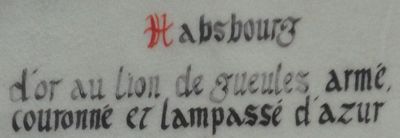 Habsbourg
d'or au lion de gueules, armé,
couronné et lampassé d'azur